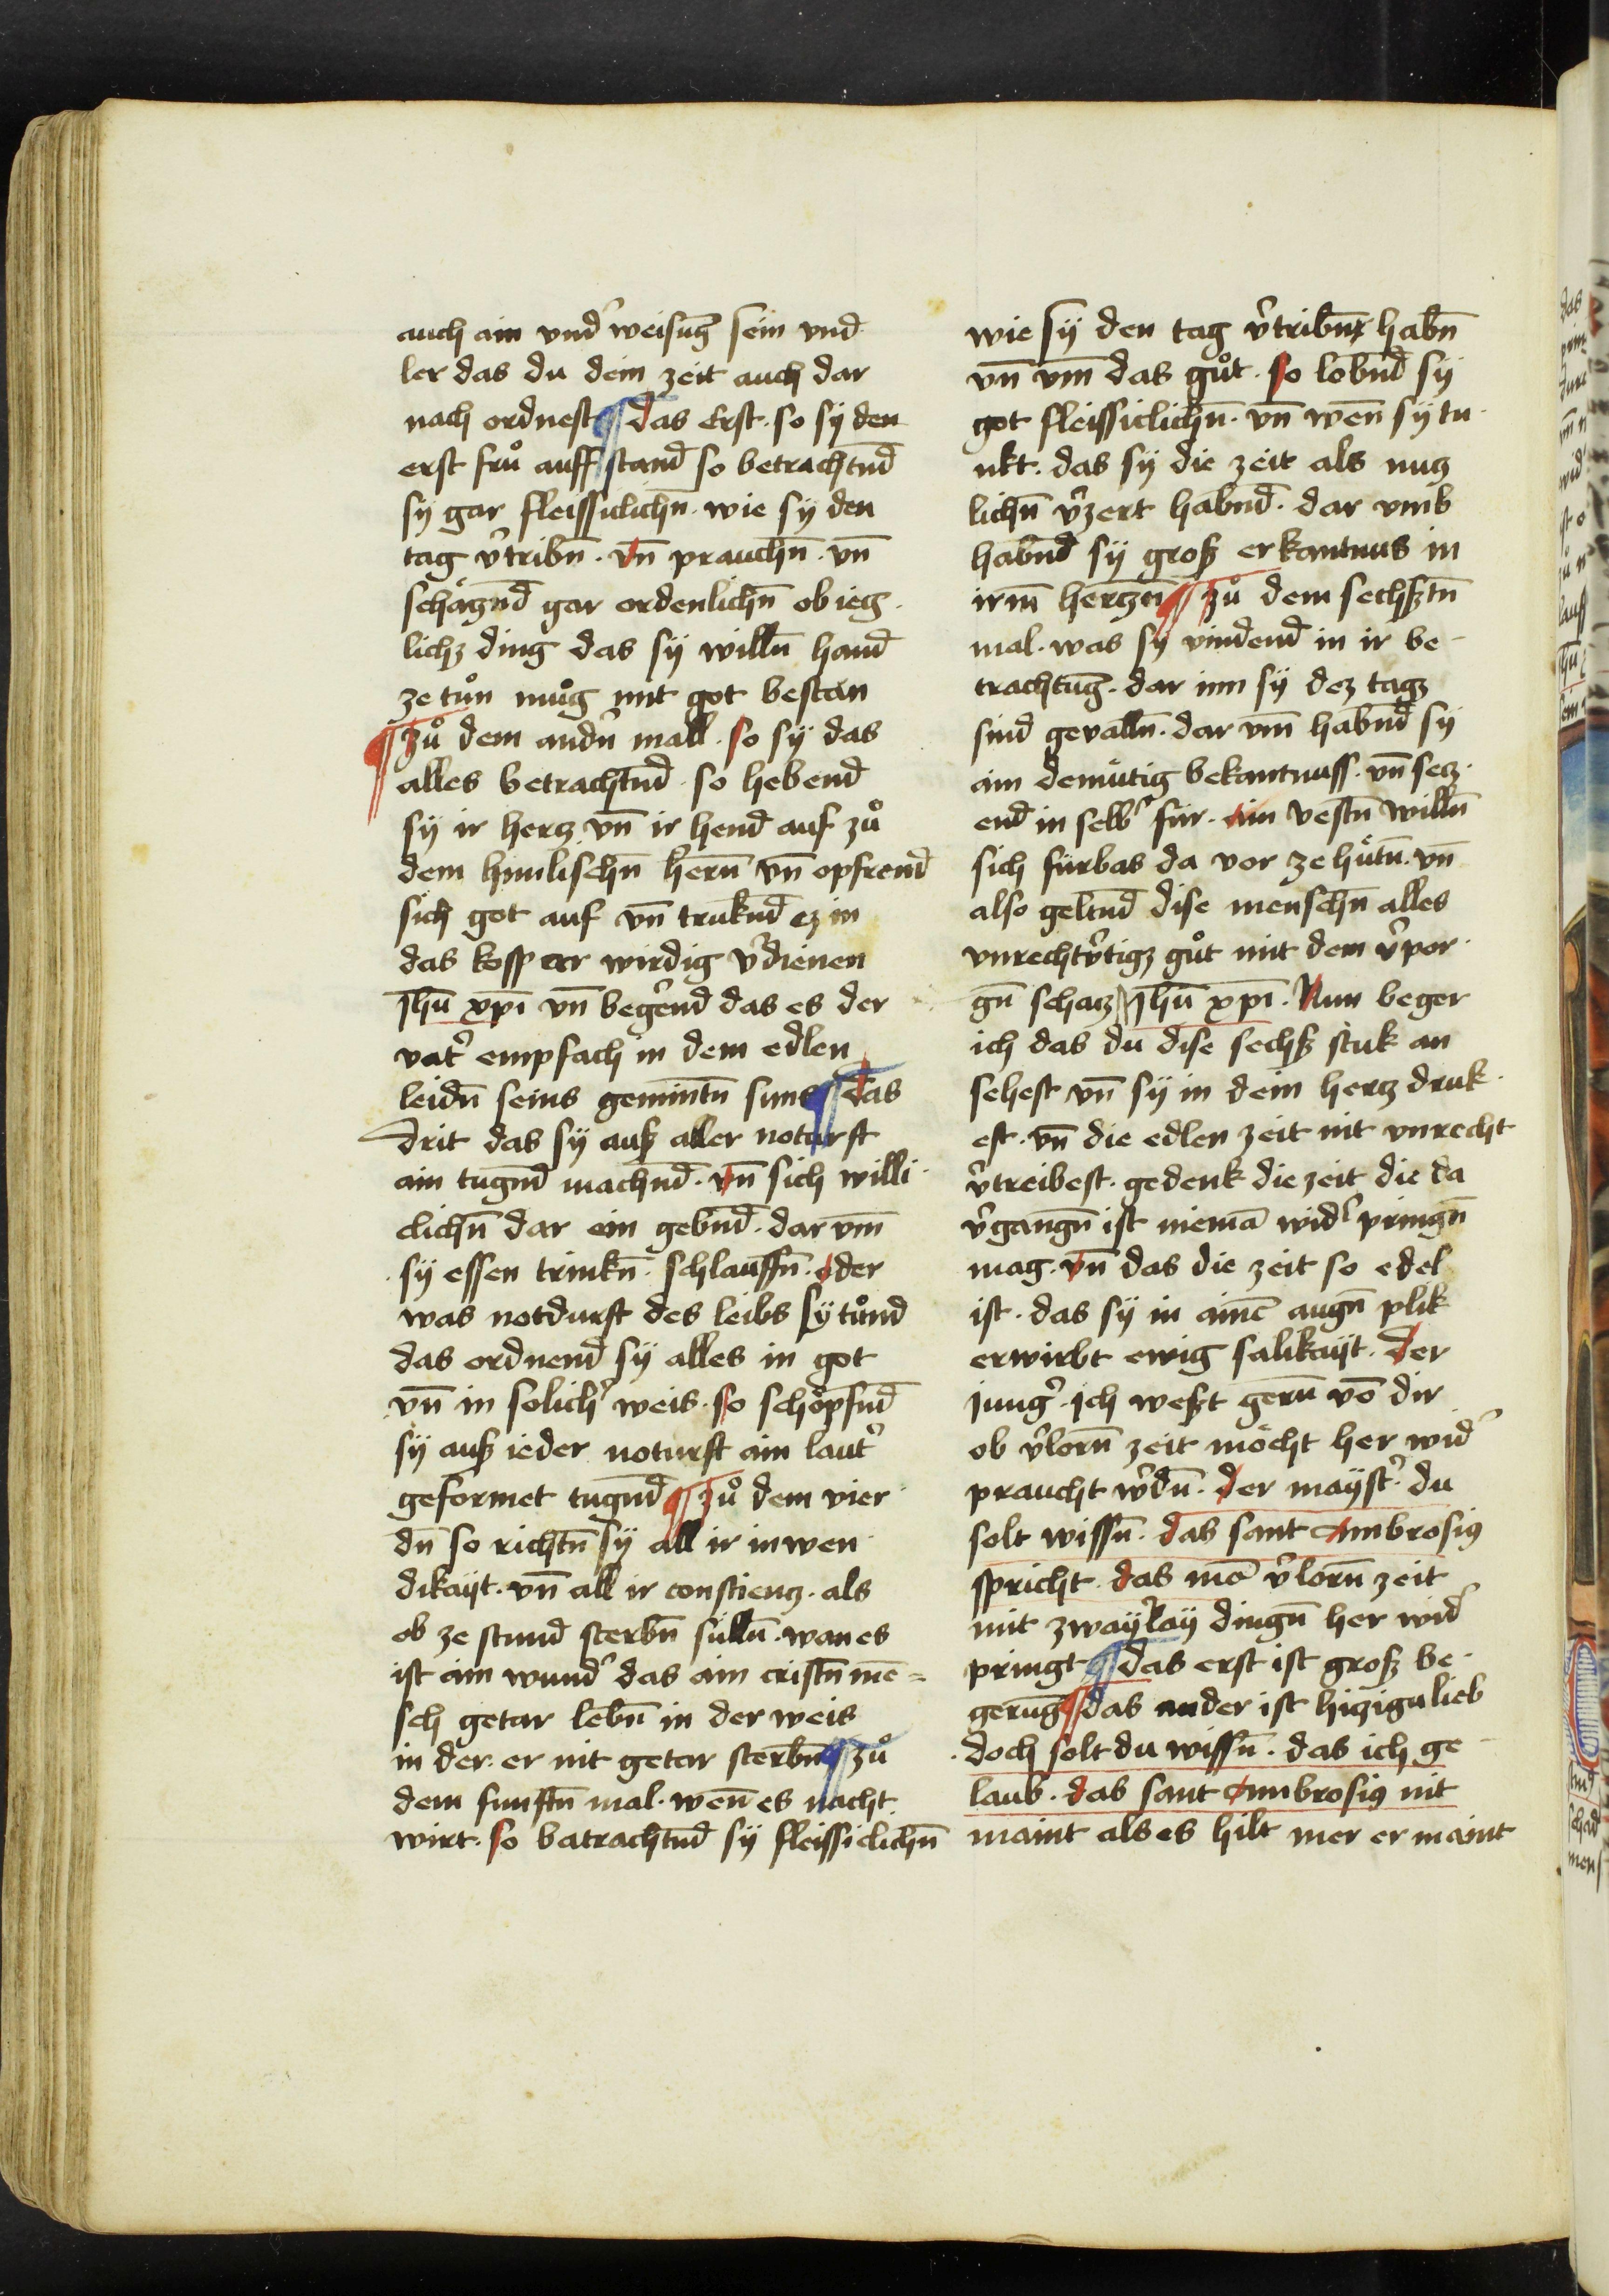 auch ain vnd᷑ weisung̅ sein vnd
ler das du dein zeit auch dar
nach ordnest ¶ das Erst · so sy̎ den
erst fruͦ auff stand so betrachtnd̅
sy̎ gar fleissiclichn̅ · wie sy̎ den
tag v᷑tribn̅ · vn̅ prauchn̅ · vn̅
schäcznd̅ gar ordenlichn̅ ob ieg ·
lichz ding das sy̎ willn̅ hand̅
ze tuͦn muͦg mit got bestan
¶ zuͦ dem andn᷑ mall · so sy̎ das
alles betrachtnd̅ · so hebend̅
sy̎ ir hercz vn̅ ir hend̅ auf zuͦ
dem himlischn̅ hern̅ vn̅ opfrend̅
sich got auf vn̅ truknd̅ ez in
das kosperr wirdig v᷑dienen
Jhu̅ xpi̅ vn̅ beg᷑end das es der
vat᷑ empfach in dem edlen
leidn̅ seins gemintn̅ suns ¶ das
drit das sy̎ ausz aller noturft
ain tugn̅d machnd̅ · vn̅ sich willi ·
clichn̅ dar ein gebnd̅ · dar vm̅
· sy̎ essen trinkn̅ · schlauffn̅ · oder
was notdurft des leibs sy̎ tuͦnd
das ordnend̅ sy̎ alles in got
vn̅ in solich᷑ weis · so schöpfnd̅
sy̎ ausz ieder noturft ain laut᷑
geformet tugnd̅ ¶ zuͦ dem vier ·
dn̅ so richtn̅ sy̎ all ir inwen ·
dikay̎t · vn̅ all ir conscienz · als
ob ze stund sterbn̅ sülln̅ · wan es
ist ain wund᷑ das ain cristn̅ me̅ =
sch getar lebn̅ in der weis
in der · er nit getar sterbn̅ ¶ zuͦ
dem funftn̅ mal · wen̅ es nacht
wirt · so batrachtnd̅ sy̎ fleissiclichn̅
wie sy̎ den tag v᷑tribn̅ habn̅
vn̅ vm̅ das guͦt · so lobnd̅ sy̎
got fleissiclichn̅ · vn̅ wen̅ sy̎ tu ·
nkt · das sy̎ die zeit als nucz
lichn̅ v᷑zert habnd̅ · dar vmb
habnd̅ sy̎ grosz erkantnus in
irm̅ herczn̅ ¶ zuͦ dem sechsztn̅
mal · was sy̎ vindend̅ in ir be -
trachtung̅ · dar inn sy̎ dez tagz
sind gevalln̅ · dar vm̅ habnd̅ sy̎
ain demütig bekantnuss · vn̅ secz ·
end in selb᷑ für · ain vestn̅ willn̅
sich fürbas da vor ze hütn̅ · vn̅
also geltnd̅ dise menschn̅ alles
vnrechtv᷑tigz guͦt mit dem v᷑por ·
gn̅ schacz Jhu̅ xpi̅ · Nun beger
ich das du dise sechsz stuk an
sehest vn̅ sy̎ in dein hercz druk ·
est · vn̅ die edlen zeit nit vnrecht
v᷑treibest · gedenk die zeit die da
v᷑gangn̅ ist niema̅ wid᷑ pringn̅
mag · vn̅ das die zeit so edel
ist · das sy̎ in aine̅ augn̅ plik
erwirbt ewig sälikay̎t · Der
jung᷑ · ich weszt gern̅ vo̅ dir
ob v᷑lorn̅ zeit möcht her wid᷑
praucht w᷑dn̅ · der may̎st᷑ · du
solt wissn̅ · das sant Ambrosiꝰ
spricht · das ma̅ v᷑lorn̅ zeit
mit zway̎rlay̎ dingn̅ her wid᷑
pringt ¶ das erst ist grosz be ·
gerung̅ ¶ das ander ist hizigu lieb
· doch solt du wissn̅ · das ich ge -
laub · das sant Ambrosiꝰ nit
maint als es hilt mer er maint